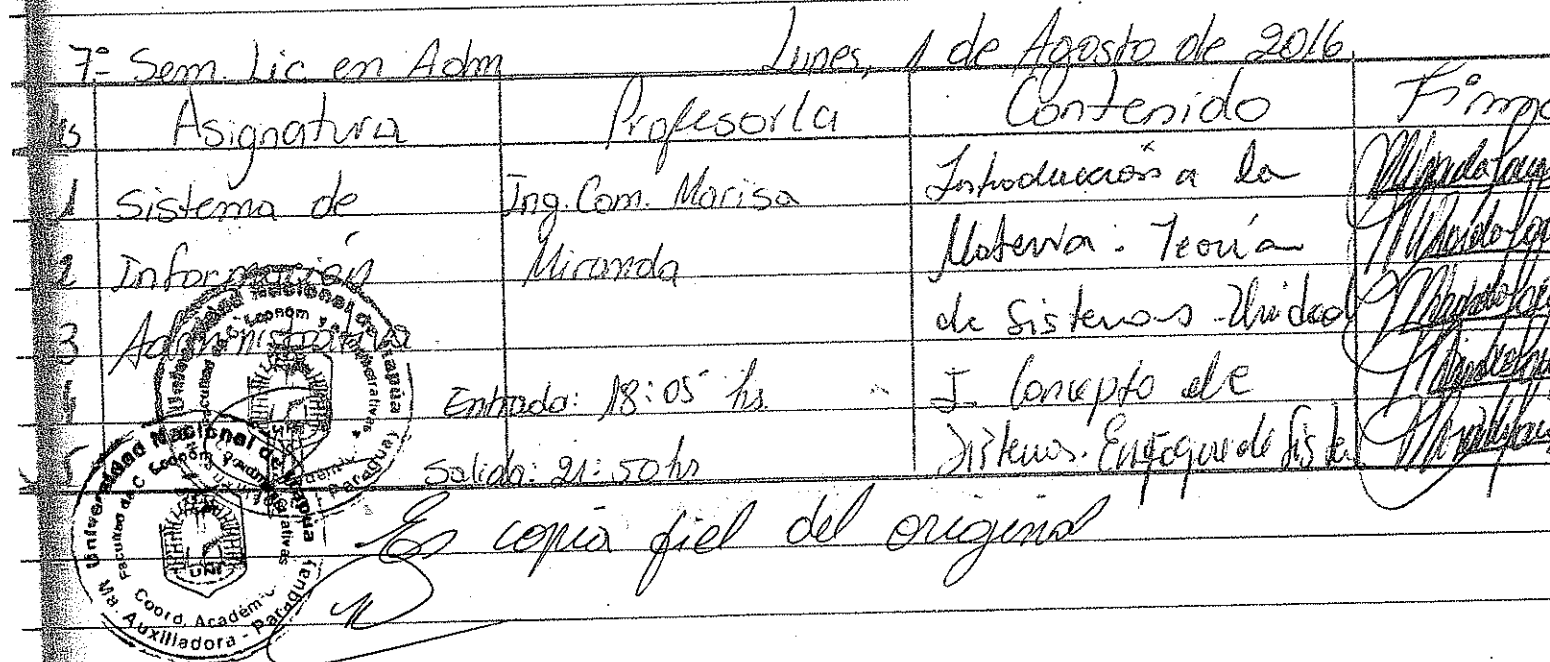 7º Sem. Lic en Adm Lunes, 1 de Agosto de 2016.
Asignatura Profesor/a Contenido Firma
1 Sistema de Ing. Com. Marisa Introducción a la
2 Información Miranda Materia. Teoría
3 Administrativa de Sistemas - Unidad
Entrada: 18:05 hs. I. Concepto de
Salida: 21:50 hs Sistemas. Enfoque de Siste
Es copia fiel del original
Universidad Nacional de Itapúa
Paraguay
Universidad Nacional de Itapúa
Facultad de C. Econom y Administrativas
UNI
Coord. Académ
Ma. Auxiliadora - Paraguay